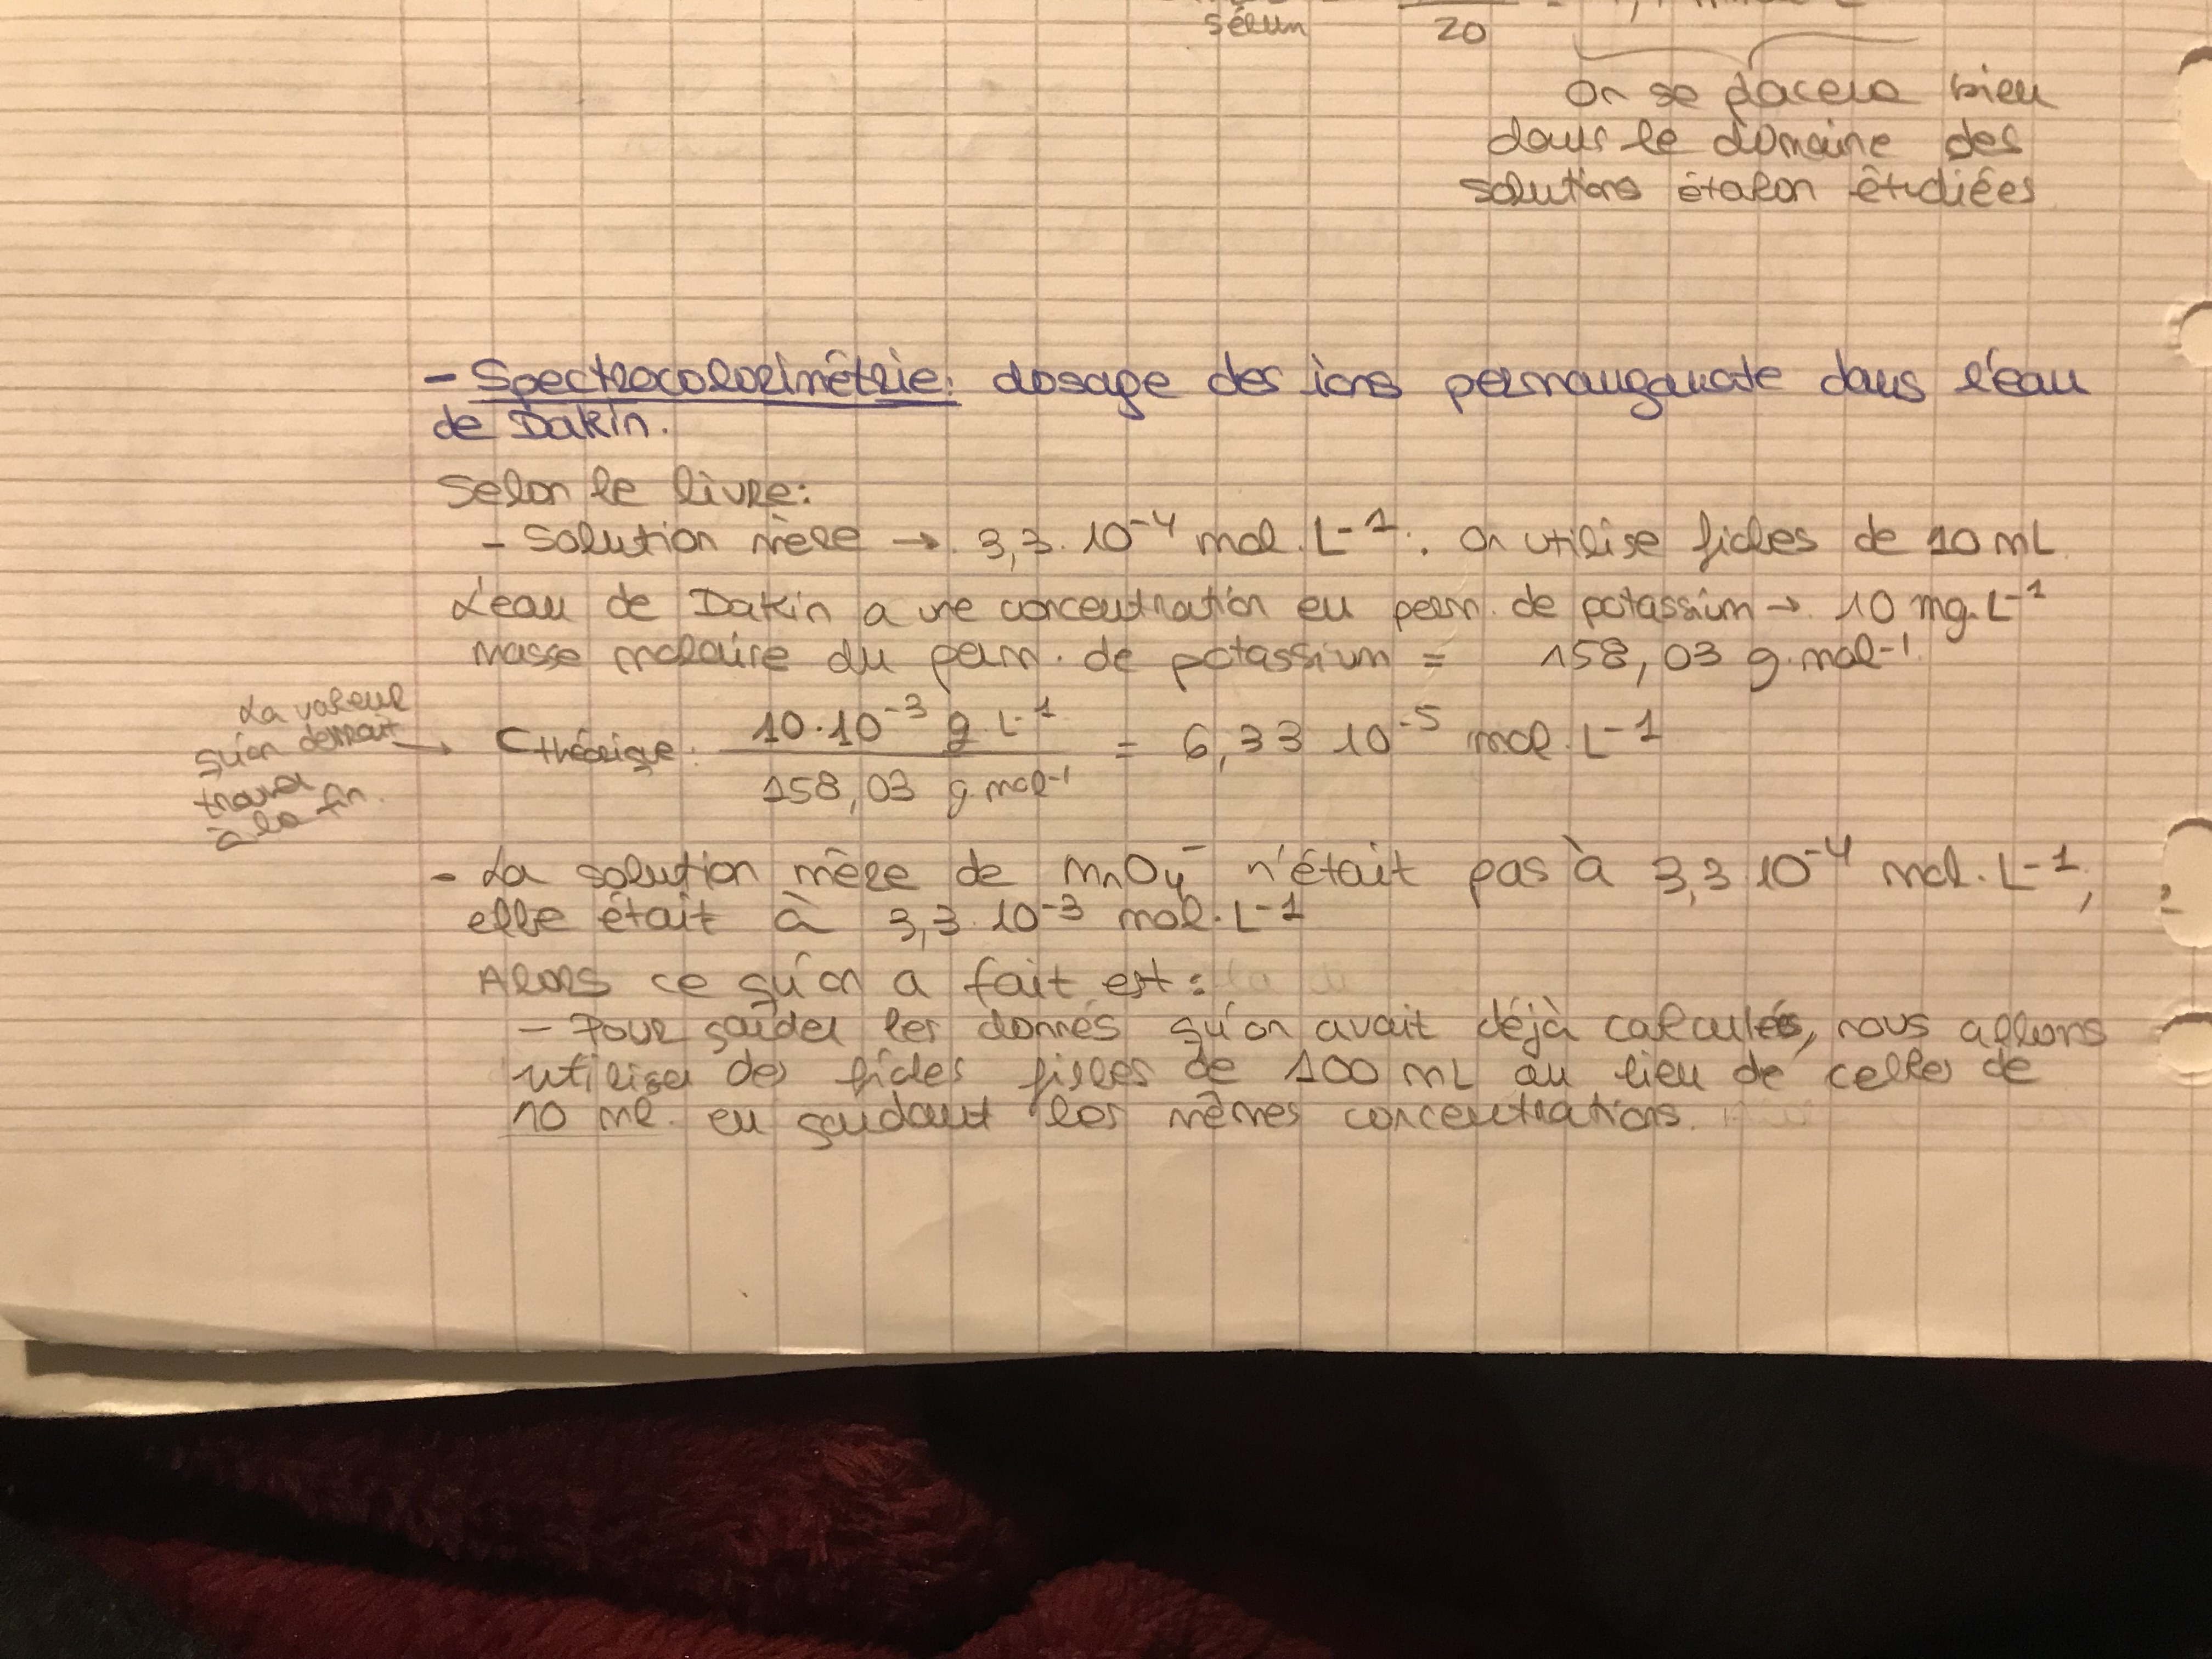 sérum
20
On se place bien
dans le domaine des
solutions étalon étudiées
- Spectrocolorimétrie: dosage des ions permanganate dans l'eau
de Dakin.
Selon le livre:
- Solution mère → 3,3. 10⁻⁴ mol. L⁻¹. on utilise fioles de 10 mL
L'eau de Dakin a une concentration en perm. de potassium → 10 mg.L⁻¹
masse molaire du perm. de potassium = 158,03 g.mol⁻¹
La valeur
qu'on devrait →
trouver
à la fin.
Cthéorique. 10.10⁻³ g.L⁻¹ = 6,33 10⁻⁵ mol. L⁻¹
158,03 g.mol⁻¹
- La solution mère de MnO₄⁻ n'était pas à 3,3. 10⁻⁴ mol. L⁻¹,
elle était à 3,3. 10⁻³ mol. L⁻¹
Alors ce qu'on a fait est :
- Pour garder les donnés qu'on avait déjà calculés, nous allons
utiliser des fioles de 100 mL au lieu de celles de
10 ml. en gardant les mêmes concentrations.